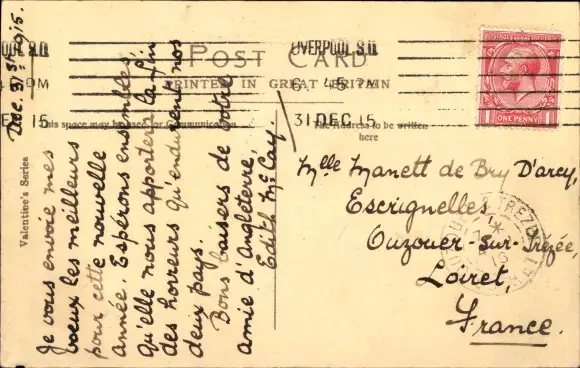 POST CARD
PRINTED IN GREAT BRITAIN
This space may be used for Communication
The Address to be written
here
Valentine's Series
LIVERPOOL S.O
6 45 PM
31 DEC 15
PM
15
POSTAGE
ONE PENNY
Dec. 31st 1915.
Je vous envoie mes
voeux les meilleurs
pour cette nouvelle
année. Espérons ensembles
qu'elle nous apportera la fin
des horreurs qu'endurent nos
deux pays.
Bons baisers de votre
amie d'Angleterre,
Edith McCay
Mlle Manett de Bry D'arcy,
Escrignelles
Ouzouer-sur-Trézée,
Loiret,
France.